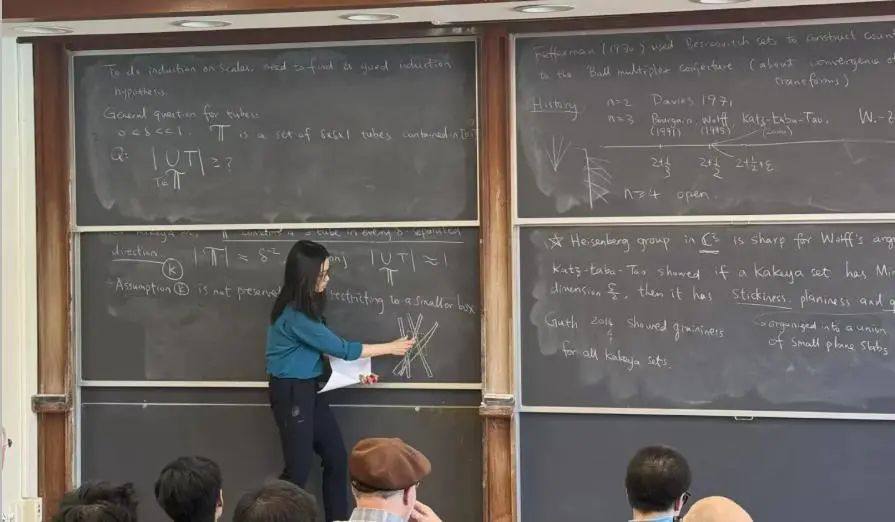 To do induction on scales, need to find a good induction
hypothesis.
General question for tubes:
0 < δ << 1. 𝕋 is a set of δxδx1 tubes contained in
Q: | ∪ T | ≥ ?
T∈𝕋
𝕋 contains a δ-tube in every δ-separated
direction. (K) |𝕋| ≈ δ⁻² | ∪ T | ≈ 1
𝕋
Assumption (K) is not restricting to a smaller box
Fefferman (1970) used Besicovitch sets to construct
to the Ball multiplier conjecture (about convergence of
transforms)
History n=2 Davies 1971
n=3 Bourgain, Wolff, Katz-Łaba-Tao, W.-
(1991) (1995)
2+1/3 2+1/2 2+1/2+ε
n≥4 open.
☆ Heisenberg group in ℂ³ is sharp for Wolff's
Katz-Łaba-Tao showed if a Kakeya set has
dimension 5/2, then it has stickiness, planiness and
Guth 2014 showed graininess → organized into a union
of small plane slabs
for all Kakeya sets.